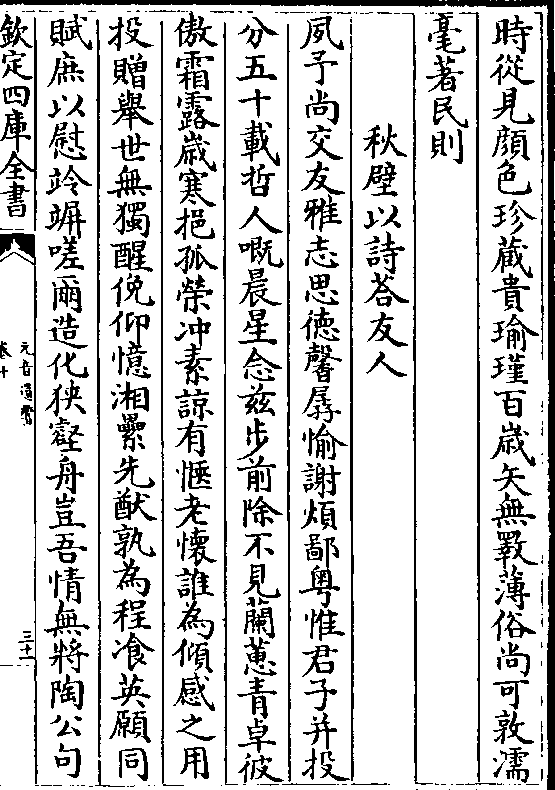 時從見顔色珍蔵貴瑜瑾百歳矢無斁薄俗尚可敦濡
毫著民則
秋壁以詩荅友人
夙予尚交友雅志思徳馨孱愉謝煩鄙粤惟君子并投
分五十載哲人嘅晨星念兹步前除不見蘭蕙青卓彼
傲霜露歳寒挹孤榮冲素諒有愜老懷誰為傾感之用
投贈舉世無獨醒俛仰憶湘纍先猷孰為程飡英願同
賦庶以慰竛竮嗟爾造化狹壑舟豈吾情無將陶公句
欽定四庫全書
元音遺響
卷十
三十一